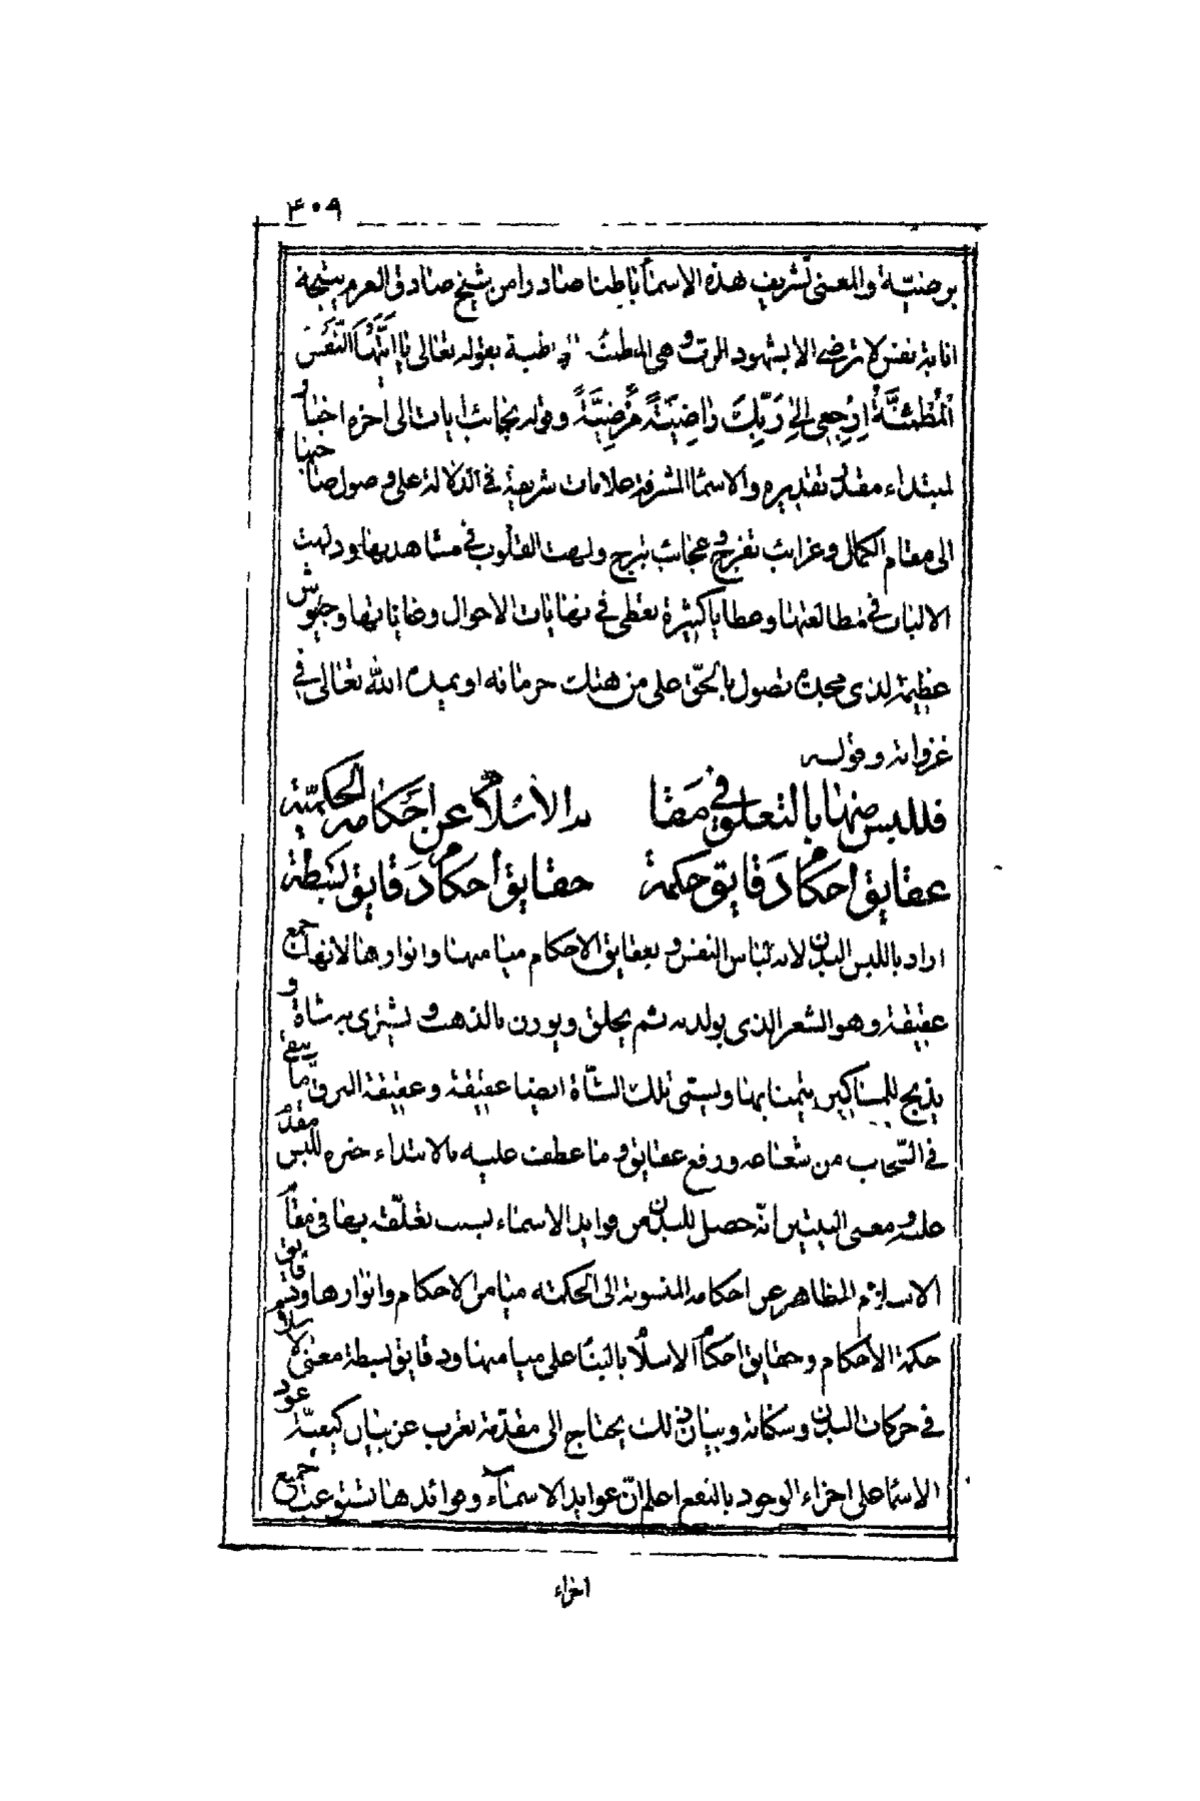 ٣٠٩
برضيّة والمعنى تشريف هذه الاسماء باطنا صادرا من شيخ صادق العزم نتيجة
انابة نفس لا ترضى الا بشهود المرتب وهى المطمئنة بقوله تعالى يا ايّتها النّفس
المُطمئنّةُ اِرْجِعِى اِلى رَبِّكِ راضِيَةً مَرْضِيَّةً وقوله نجائب ايات الى اخره اخبار
لمبتداء مقدّر تقديره والاسماء المشرفة علامات شريفة فى الدلالة على وصول صاحبها
الى مقام الكمال وغرائب تفرّج وعجائب تبرج ولهت القلوب فى مشاهدتها ودلهت
الالباب فى مطالعتها وعطايا كثيرة تعطى فى نهايات الاحوال وغاياتها وجيوش
عظيمة لذى نجدة تصول بالحقّ على من هتك حرماته او يمدّه الله تعالى فى
غزواته وقوله
فللبس منها بالتعلق فى مقا م الاسلام عن احكامه الحكميّة
عقايق احكام دقايق حكمة حقايق احكام دقايق بسطة
اراد باللبس البدن لانه لباس النفس وبعقايق الاحكام ميامنها وانوارها لانها جمع
عقيقة وهو الشعر الذى يولد به ثم يحلق ويوزن بالذهب ويشترى به شاة و
يذبح للمساكين تيمنا بها ويسمّى تلك الشاة ايضا عقيقة وعقيقة البرق ما يبقى
فى السّحاب من شعاعه ورفع عقايق وما عطفت عليه بالابتداء خبره للبس مقدّم
عليه ومعنى البيتين انّه حصل للبدن من فوايد الاسماء بسبب تعلّقه بها فى مقام
الاسلام المظاهر عن احكامه المنسوبة الى الحكمة ميامن الاحكام وانوارها ودقايق
حكمة الاحكام وحقايق احكام الاسلام بالبناء على ميامنها ودقايق بسطة معنى الاسلام
فى حركات البدن وسكناته وبيان ذلك يحتاج الى مقدّمة تعرب عن بيان كيفيّة عود
الاسماء على اجزاء الوجود بالنفع اعلم انّ عوايد الاسماء وفوائدها تستوعب جميع
اجزاء